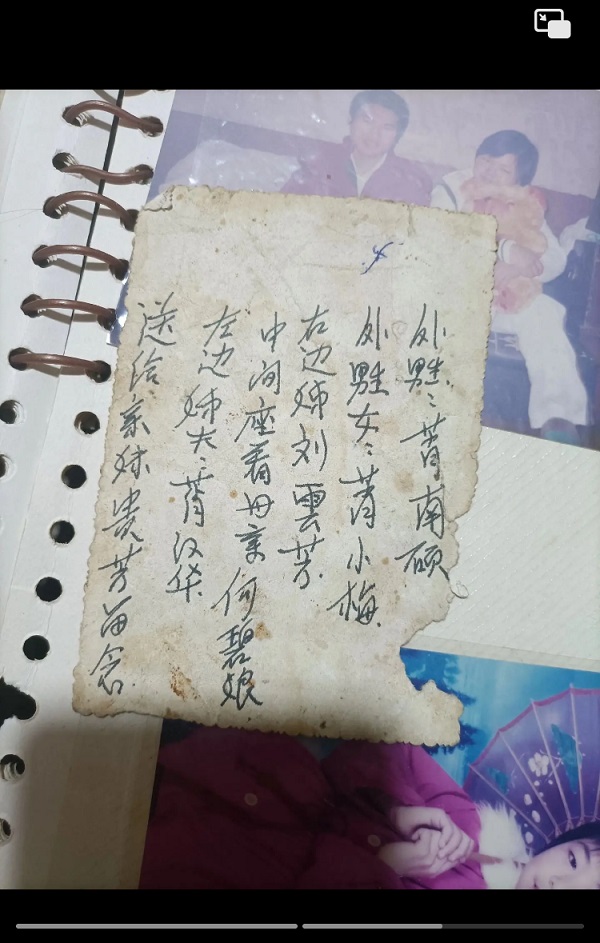 外甥:菁南硕
外甥女:菁小梅
右边姊刘雲芳
中间座着母亲何碧娘
左边姊夫:菁汉华
送给亲妹贵芳留念